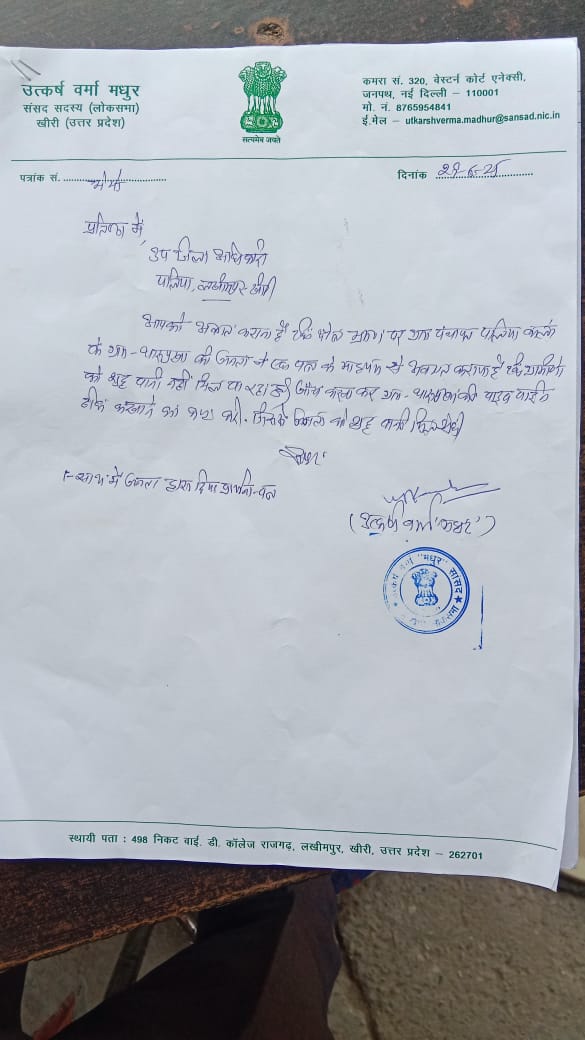 उत्कर्ष वर्मा मधुर
संसद सदस्य (लोकसभा)
खीरी (उत्तर प्रदेश)
सत्यमेव जयते
कमरा सं. 320, वेस्टर्न कोर्ट एनेक्सी,
जनपथ, नई दिल्ली – 110001
मो. नं. 8765954841
ई.मेल – utkarshverma.madhur@sansad.nic.in
पत्रांक सं.
दिनांक
उप जिला अधिकारी
पलिया, लखीमपुर-खीरी
आपको अवगत कराना है कि पर ग्राम पंचायत पलिया
के ग्राम- की जनता ने एक पत्र के माध्यम से अवगत कराया है कि ग्रामीणों
को शुद्ध पानी नहीं मिल पा रहा है। जाँच करा कर ग्राम- की पाइप लाईन
ठीक करवाने की कृपा करें। जिससे जनता को शुद्ध पानी मिल सके।
सादर
1- साथ में जनता द्वारा दिया प्रार्थना-पत्र
(उत्कर्ष वर्मा 'मधुर')
उत्कर्ष वर्मा "मधुर" सांसद
लोकसभा
स्थायी पता : 498 निकट वाई. डी. कॉलेज राजगढ़, लखीमपुर, खीरी, उत्तर प्रदेश – 262701